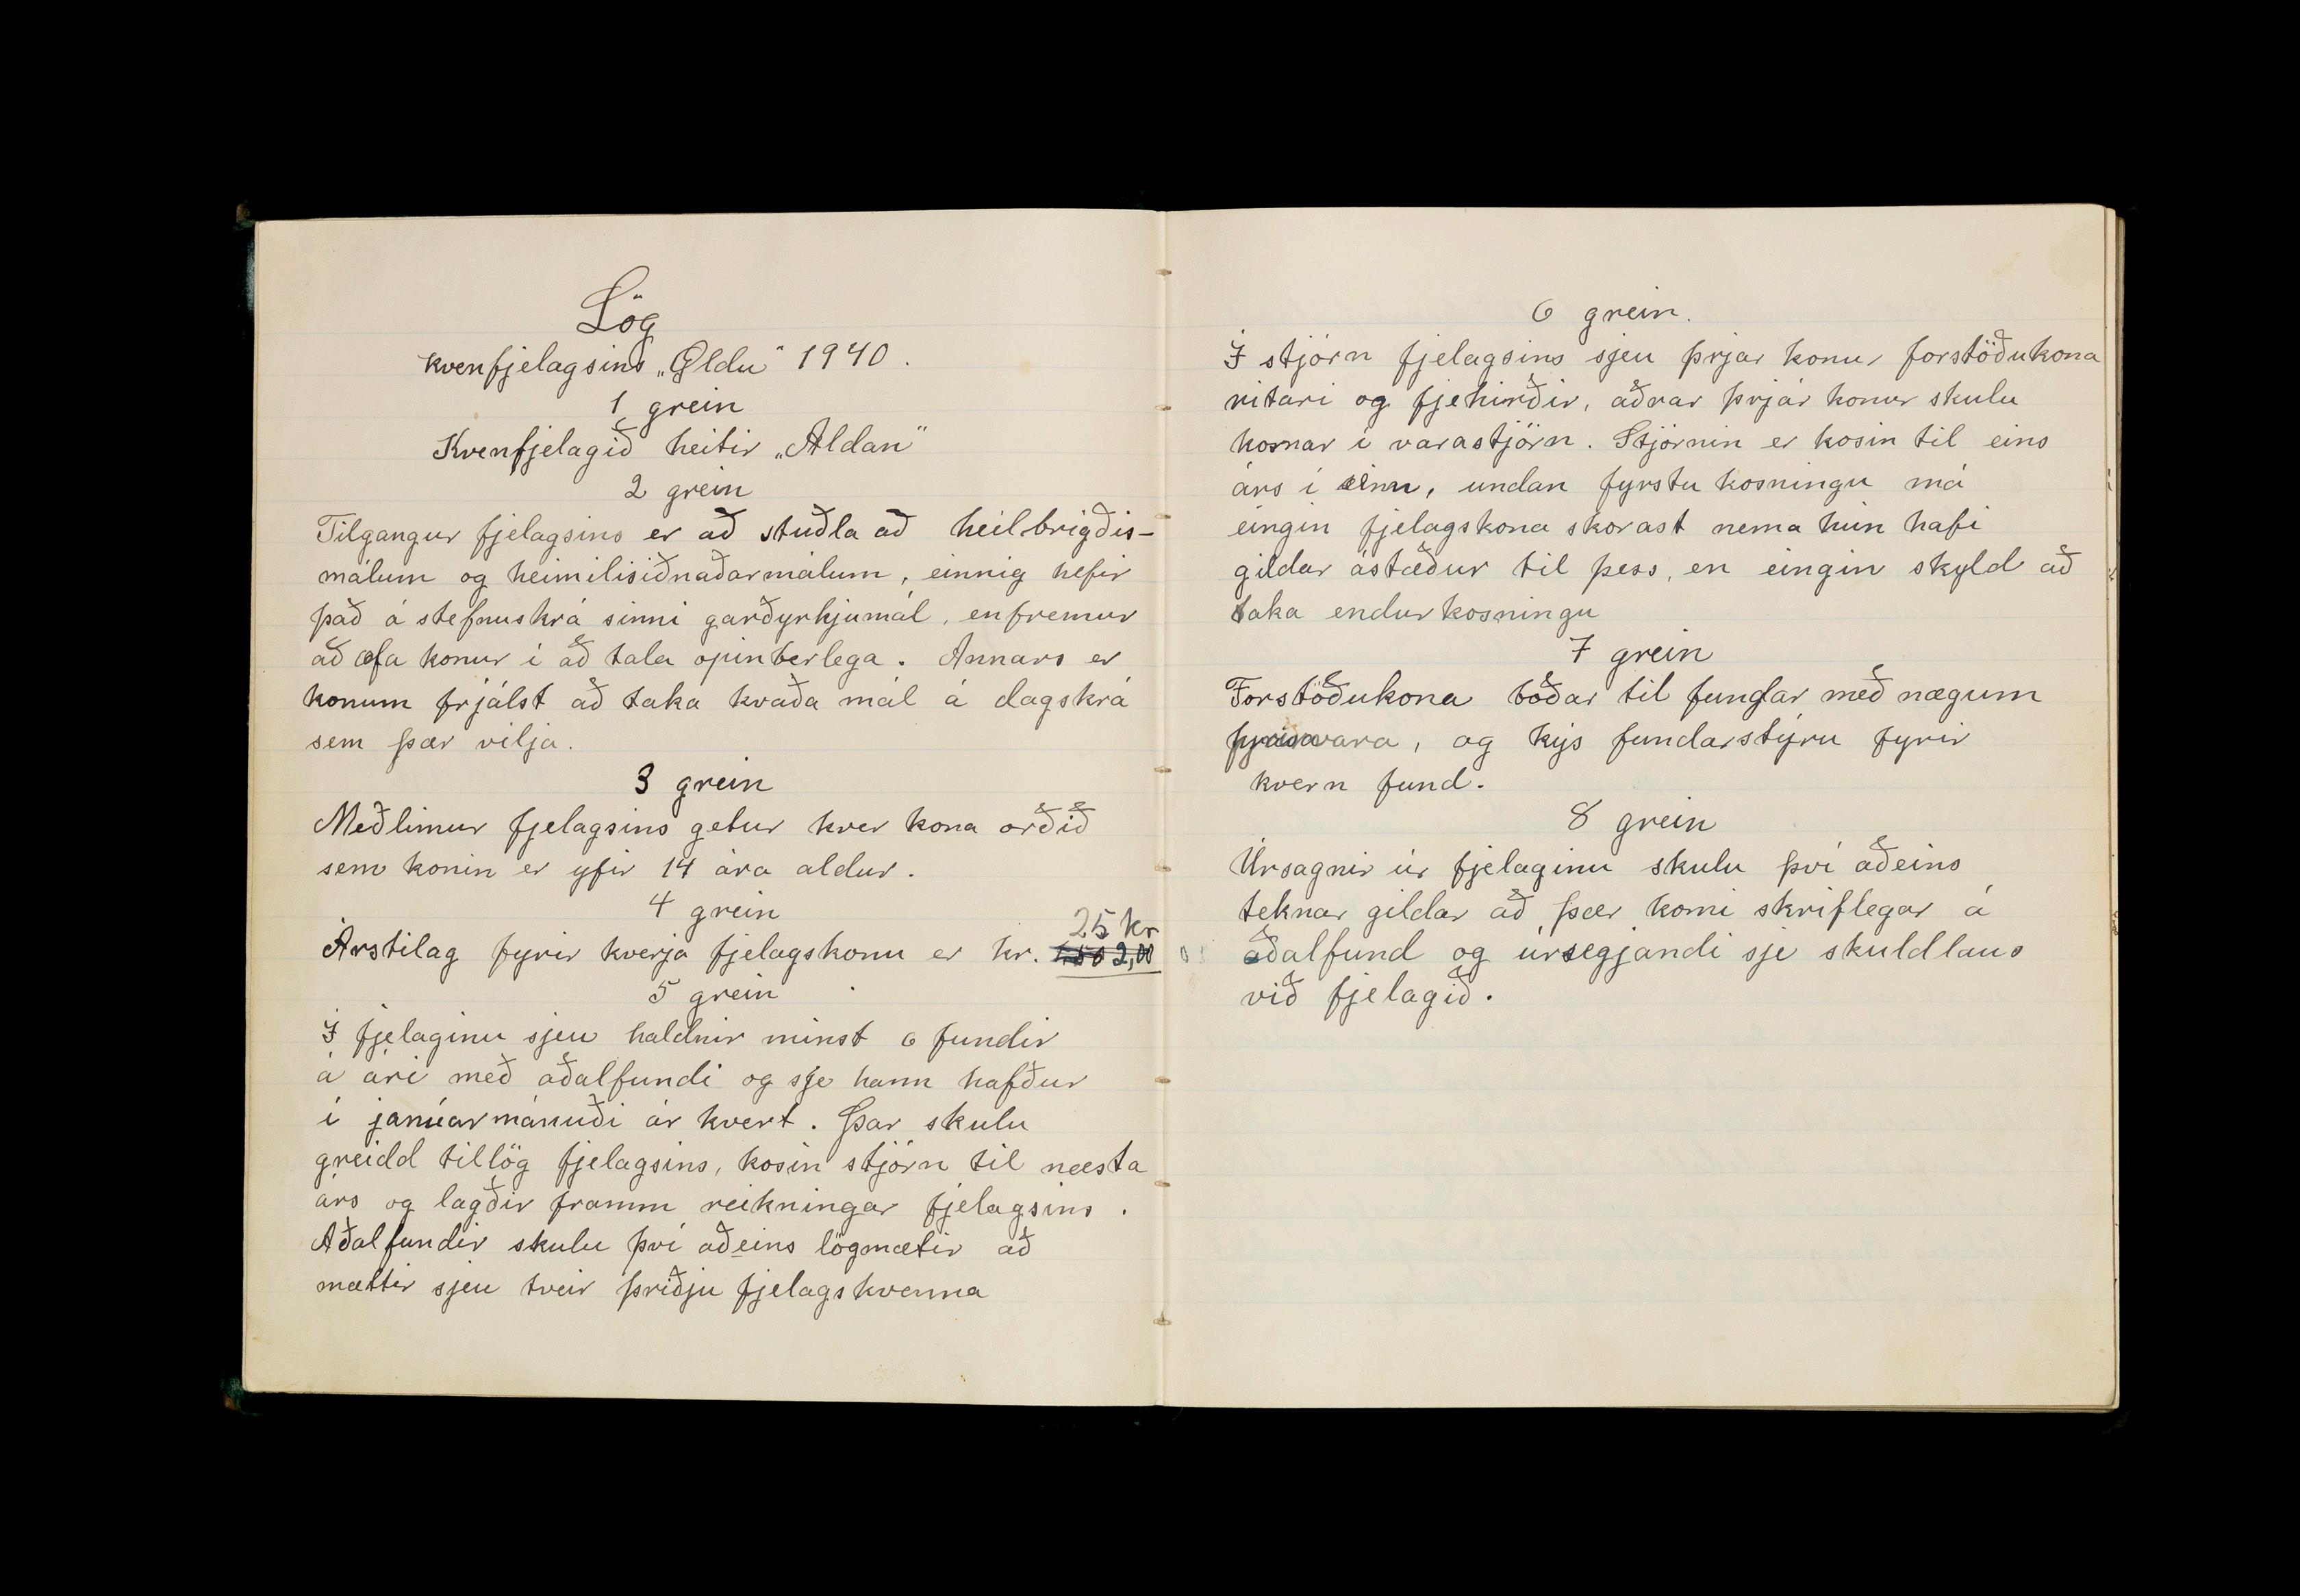 Lög
kvenfjelagsins „Öldu" 1940.
1 grein
Kvenfjelagið heitir „Aldan"
2 grein
Tilgangur fjelagsins er að stuðla að heilbrigðis-
málum og heimilisiðnaðarmálum, einnig hefir
það á stefnuskrá sinni garðyrkjumál, enfremur
að æfa konur í að tala opinberlega. Annars er
konum frjálst að taka kvaða mál á dagskrá
sem þær vilja.
3 grein
Meðlimur fjelagsins getur kver kona orðið
sem konin er yfir 14 ára aldur.
4 grein
25 kr
Árstilag fyrir kverja fjelagskonu er kr. 2,00
5 grein
Í fjelaginu sjeu haldnir minst 6 fundir
á ári með aðalfundi og sje hann hafður
í janúarmánuði ár kvert. Þar skulu
greidd tillög fjelagsins, kosin stjórn til næsta
árs og lagðir framm reikningar fjelagsins.
Aðalfundir skulu því aðeins lögmætir að
mættir sjeu tveir þriðju fjelagskvenna
6 grein.
Í stjórn fjelagsins sjeu þrjar konur forstöðukona
ritari og fjehirðir, aðrar þrjár konur skulu
kosnar í varastjórn. Stjórnin er kosin til eins
árs í einu, undan fyrstu kosningu má
eingin fjelagskona skorast nema hún hafi
gildar ástæður til þess, en eingin skyld að
taka endurkosningu
7 grein
Forstöðukona boðar til fundar með nægum
fyrirvara, og kýs fundarstýru fyrir
kvern fund.
8 grein
Úrsagnir úr fjelaginu skulu því aðeins
teknar gildar að þær komi skriflegar á
aðalfund og úrsegjandi sje skuldlaus
við fjelagið.